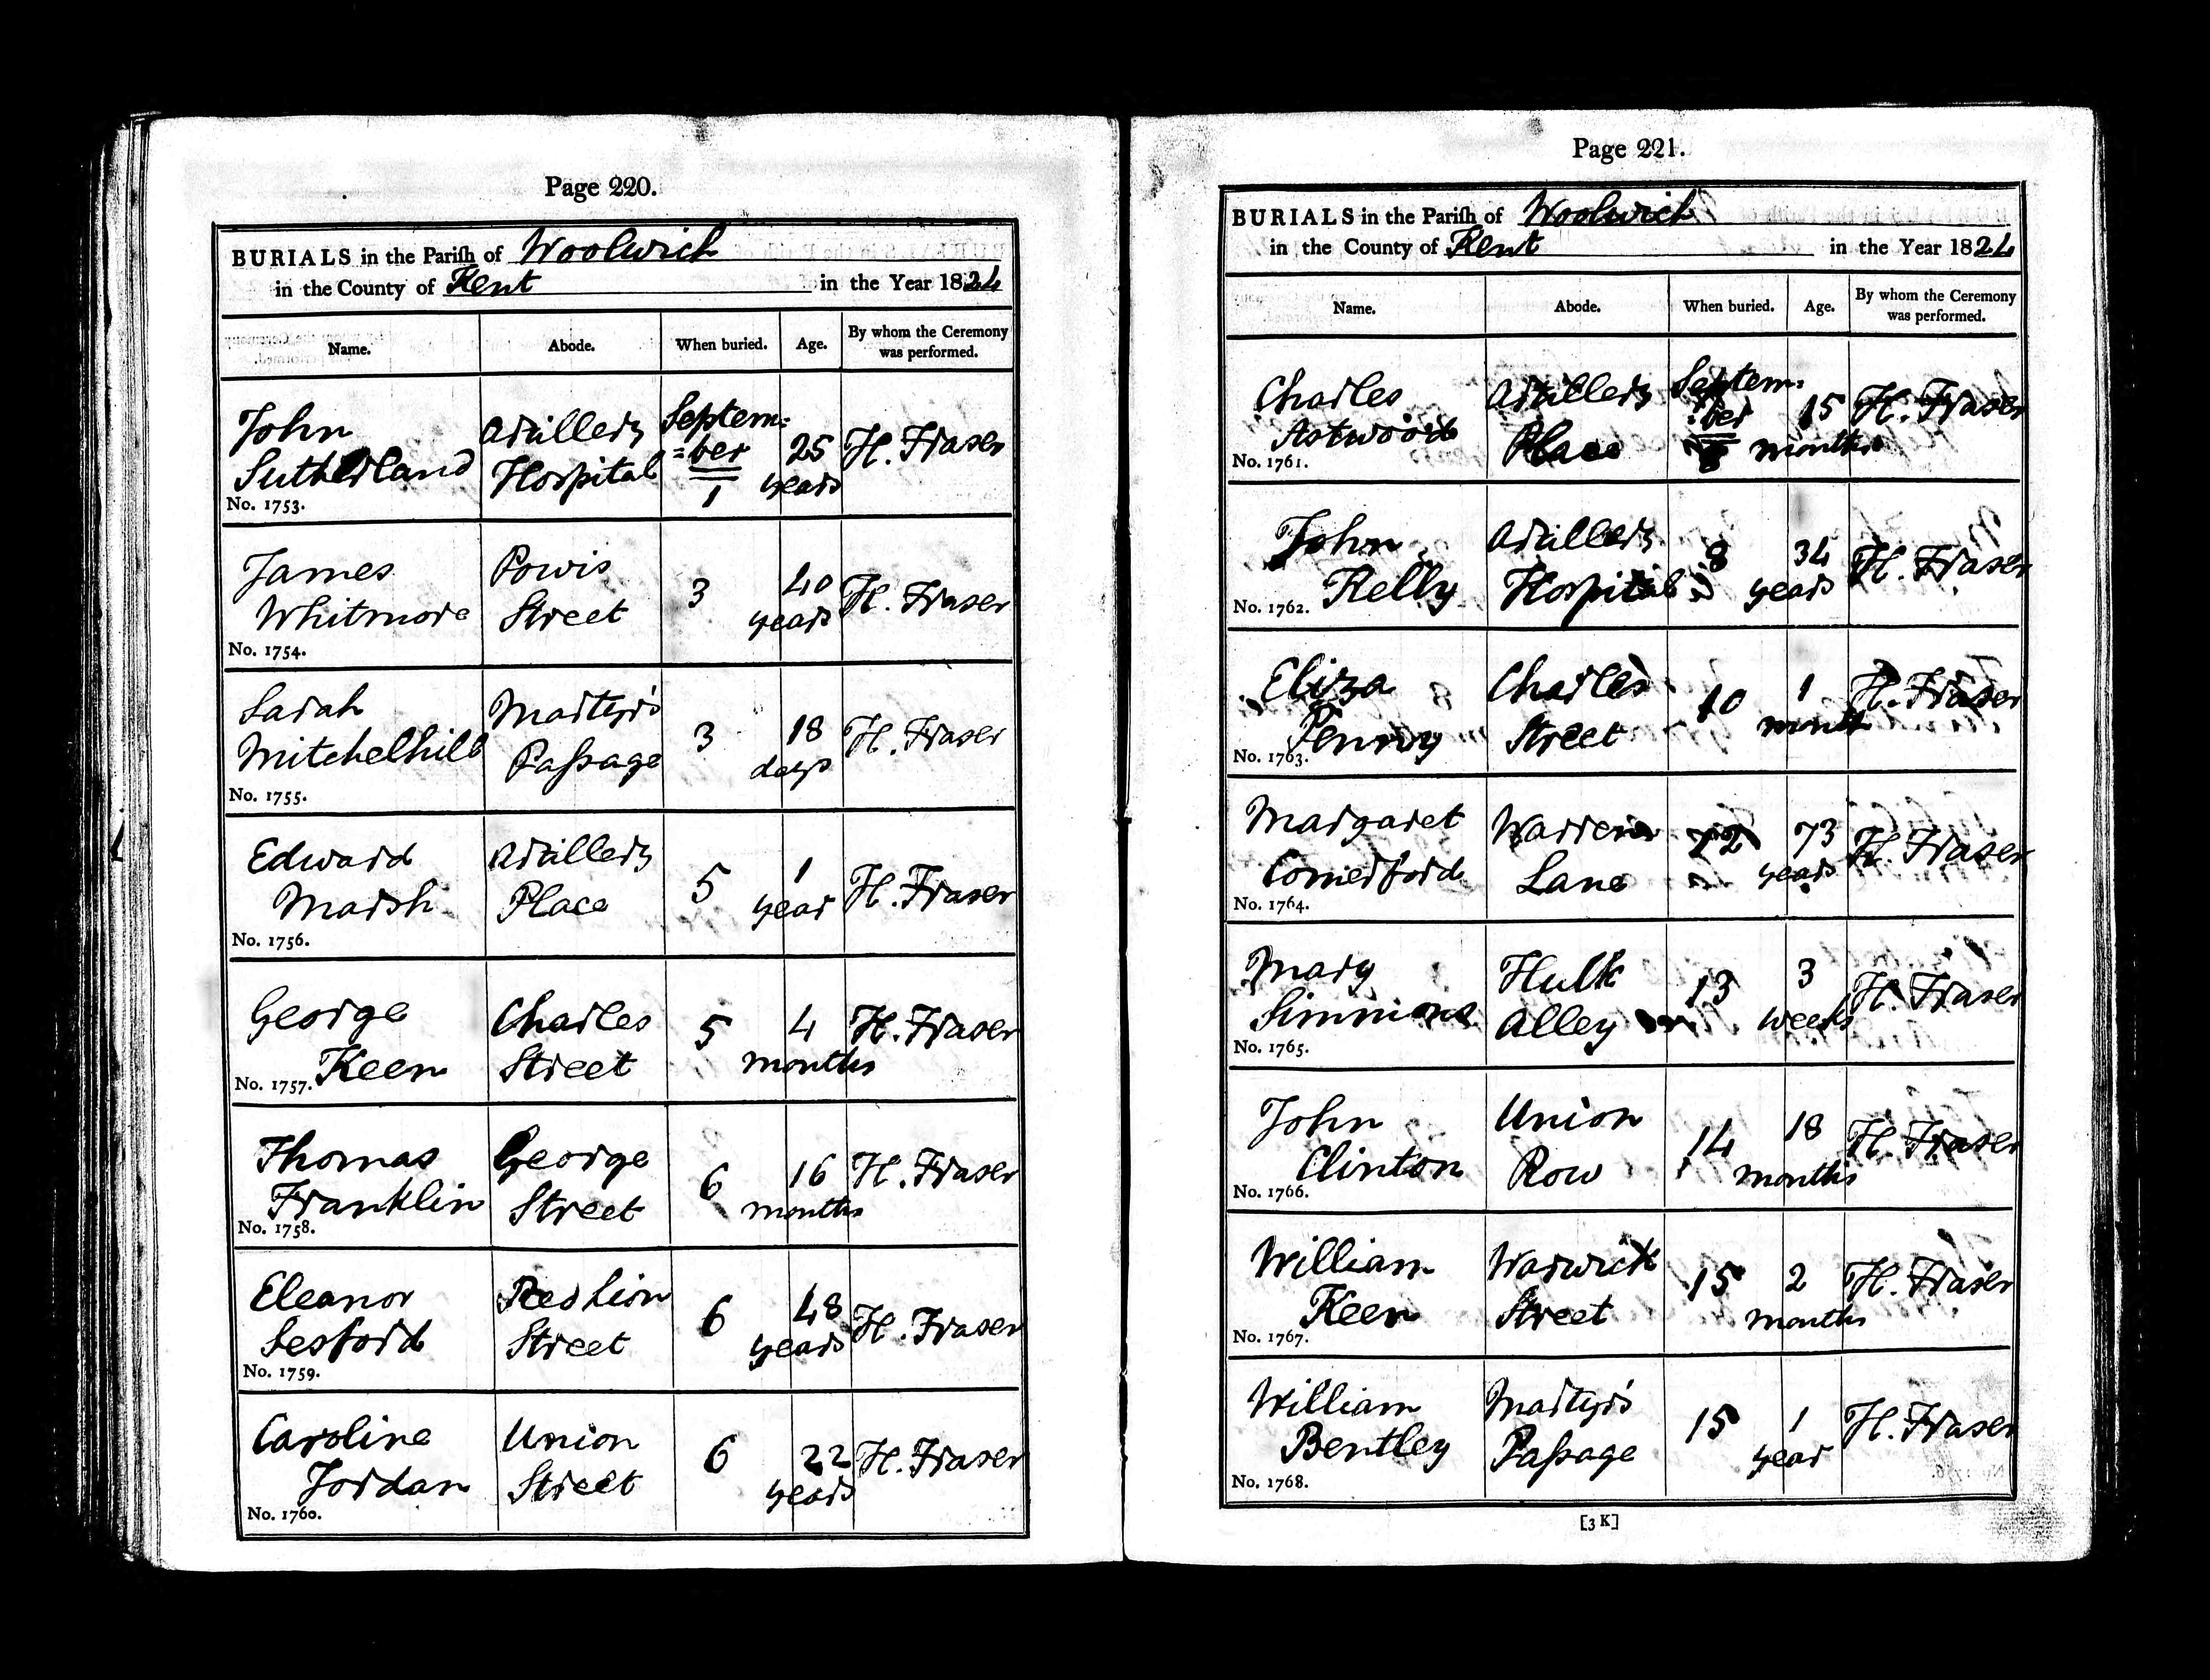 Page 220.
BURIALS in the Pariſh of Woolwich
in the County of Kent in the Year 1824
Name. Abode. When buried. Age. By whom the Ceremony was performed.
John Artillery Septem=
Sutherland Hospital =ber 25 H. Fraser
No. 1753. 1 years
James Powis 3 40 H. Fraser
Whitmore Street years
No. 1754.
Sarah Martyr's 3 18 H. Fraser
Mitchelhill Paſsage days
No. 1755.
Edward Artillery 5 1 H. Fraser
Marsh Place year
No. 1756.
George Charles 5 4 H. Fraser
No. 1757. Keen Street months
Thomas George 6 16 H. Fraser
Franklin Street months
No. 1758.
Eleanor Red Lion 6 48 H. Fraser
Sesford Street years
No. 1759.
Caroline Union 6 22 H. Fraser
Jordan Street years
No. 1760.
Page 221.
BURIALS in the Pariſh of Woolwich
in the County of Kent in the Year 1824
Name. Abode. When buried. Age. By whom the Ceremony was performed.
Charles Artillery Septem=
Astwood Place =ber 15 H. Fraser
No. 1761. months
John Artillery 8 34 H. Fraser
No. 1762. Kelly Hospital years
Eliza Charles 10 1 H. Fraser
Penny Street month
No. 1763.
Margaret Warren 12 73 H. Fraser
Comerford Lane years
No. 1764.
Mary Hulk 13 3 H. Fraser
Simmons Alley weeks
No. 1765.
John Union 14 18 H. Fraser
Clinton Row months
No. 1766.
William Warwick 15 2 H. Fraser
Keen Street months
No. 1767.
William Martyr's 15 1 H. Fraser
Bentley Paſsage year
No. 1768.
[3 K]